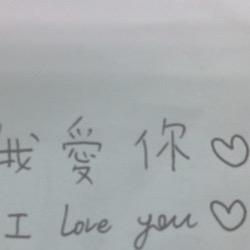 我愛你♡
I Love you♡